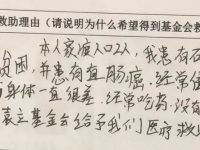 救助理由（请说明为什么希望得到基金会救
本人家庭人口2人，我患有石
贫困，并患有直肠癌，经常住
身体一直很差，经常吃药，没有
袁立基金会给予我们医疗救